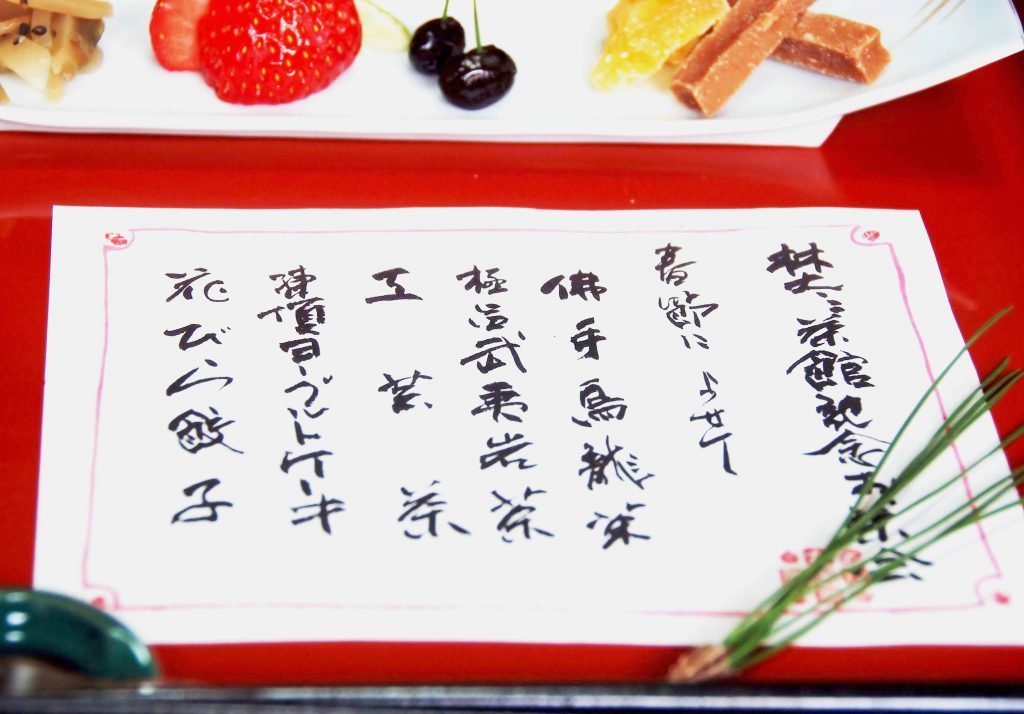 梵々茶館記念お茶会
春節によせて
佛手烏龍茶
極品武夷岩茶
工芸茶
凍頂ヨーグルトケーキ
花びら餃子